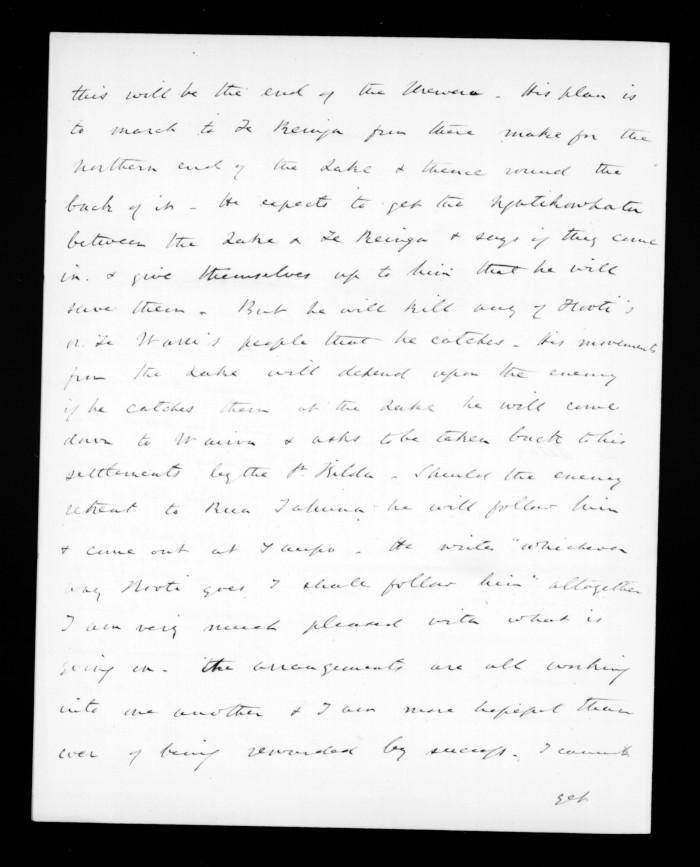 this will be the end of the Urewera - His plan is
to march to Te Reinga from there make for the
Northern end of the Lake & thence round the
back of it - He expects to get the Ngatikowhatu
between the Lake & Te Reinga & says if they come
in & give themselves up to him that he will
save them - But he will kill any of Kooti's
or Te Waru's people that he catches - His movements
from the Lake will depend upon the enemy
if he catches them at the Lake he will come
down to Wairoa & asks to be taken back to his
settlements by the St Kilda - Should the enemy
retreat to Rua Tahuna he will follow him
& come out at Taupo - He writes "whichever
way Kooti goes I shall follow him" altogether
I am very much pleased with what is
going on - the arrangements are all working
into one another & I am more hopeful than
ever of being rewarded by success - I cannot
get